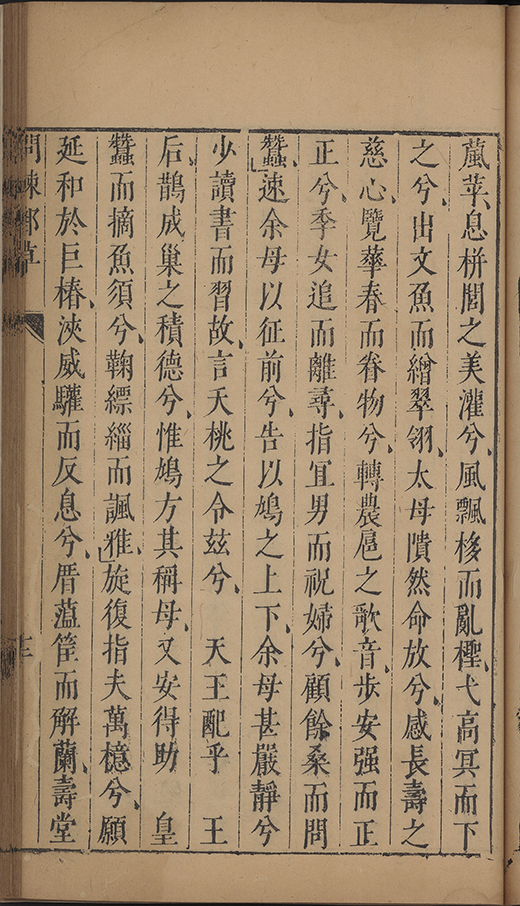 薍苹、息栟閭之美灌兮、風飄移而亂檉、弋高冥而下
之兮、出文魚而繒翠翎、太母隤然命放兮、感長壽之
慈心、覽華春而眷物兮、轉農扈之歌音、步安强而正
正兮、季女追而離尋、指宜男而祝婦兮、顧餘桑而問
蠶、速余母以征前兮、告以鳩之上下、余母甚嚴靜兮
少讀書而習故、言夭桃之令兹兮、　天王配乎　王
后、鵲成巢之積德兮、惟鳩方其稱母、又安得助　皇
蠶而摘魚須兮、鞠縹緇而諷雅、旋復指夫萬檍兮、願
延和於巨椿、浹威驩而反息兮、厝薀筐而解蘭、壽堂
問棘郵草